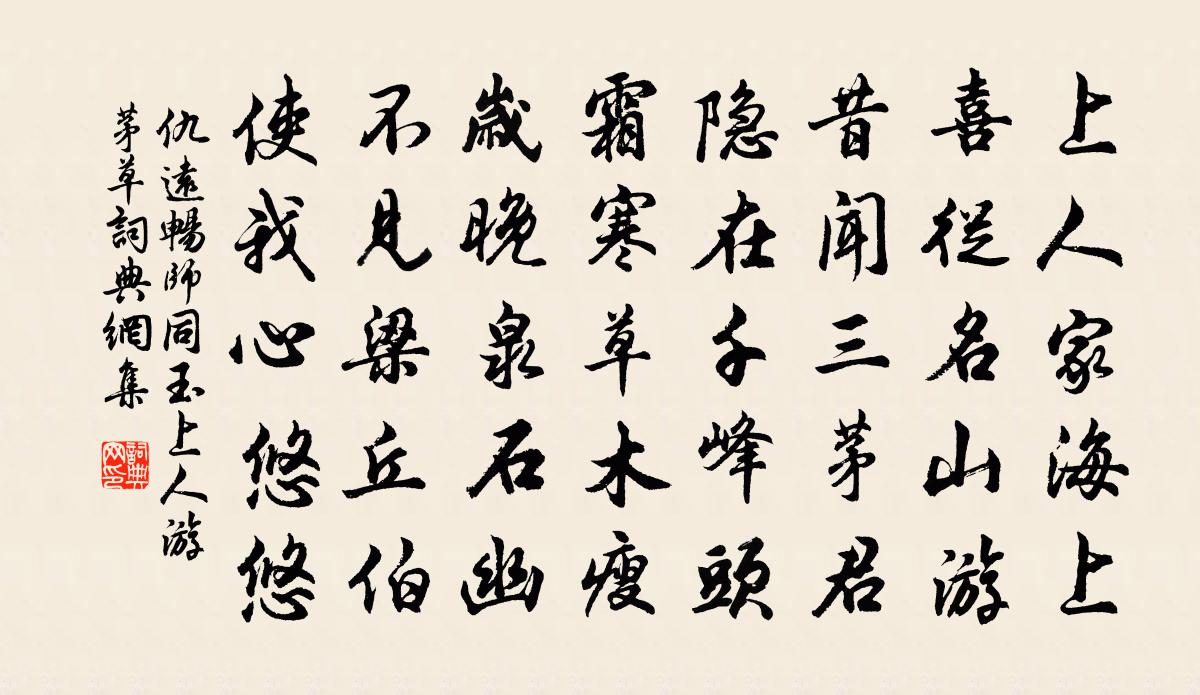 上人家海上
喜從名山游
昔聞三茅君
隐在千峰頭
霜寒草木瘦
歲晚泉石幽
不見梁丘伯
使我心悠悠
仇遠暢師同玉上人游
茅草詞典網集
詞典網印